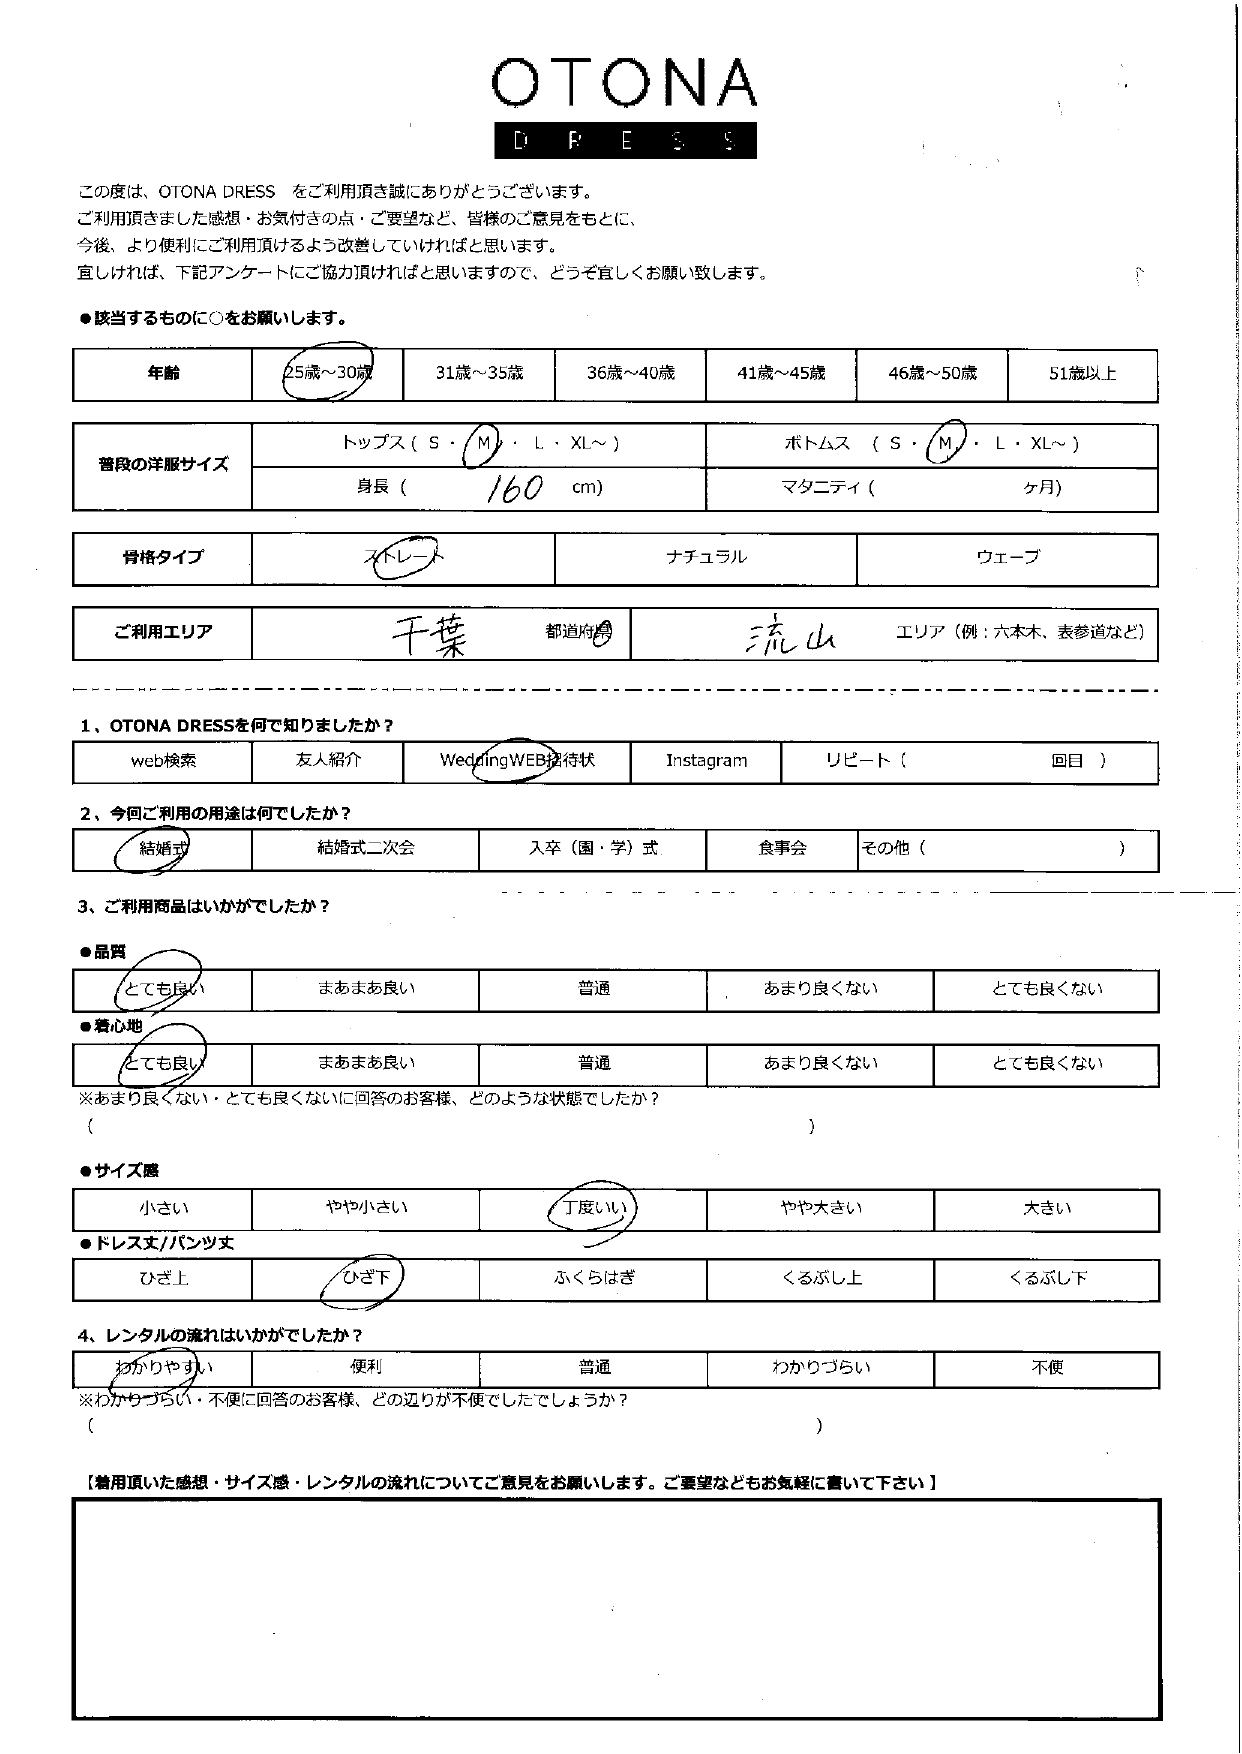 OTONA
DRESS
この度は、OTONA DRESS　をご利用頂き誠にありがとうございます。
ご利用頂きました感想・お気付きの点・ご要望など、皆様のご意見をもとに、
今後、より便利にご利用頂けるよう改善していければと思います。
宜しければ、下記アンケートにご協力頂ければと思いますので、どうぞ宜しくお願い致します。
●該当するものに○をお願いします。
年齢 25歳～30歳 31歳～35歳 36歳～40歳 41歳～45歳 46歳～50歳 51歳以上
普段の洋服サイズ トップス ( S ・ M ・ L ・ XL～ ) ボトムス ( S ・ M ・ L ・ XL～ )
身長 ( 160 cm) マタニティ ( ケ月)
骨格タイプ ストレート ナチュラル ウェーブ
ご利用エリア 千葉 都道府県 流山 エリア（例：六本木、表参道など）
1、OTONA DRESSを何で知りましたか？
web検索 友人紹介 WeddingWEB招待状 Instagram リピート（ 回目 ）
2、今回ご利用の用途は何でしたか？
結婚式 結婚式二次会 入卒（園・学）式 食事会 その他（ ）
3、ご利用商品はいかがでしたか？
●品質
とても良い まあまあ良い 普通 あまり良くない とても良くない
●着心地
とても良い まあまあ良い 普通 あまり良くない とても良くない
※あまり良くない・とても良くないに回答のお客様、どのような状態でしたか？
（ ）
●サイズ感
小さい やや小さい 丁度いい やや大きい 大きい
●ドレス丈/パンツ丈
ひざ上 ひざ下 ふくらはぎ くるぶし上 くるぶし下
4、レンタルの流れはいかがでしたか？
わかりやすい 便利 普通 わかりづらい 不便
※わかりづらい・不便に回答のお客様、どの辺りが不便でしたでしょうか？
（ ）
【着用頂いた感想・サイズ感・レンタルの流れについてご意見をお願いします。ご要望などもお気軽に書いて下さい】